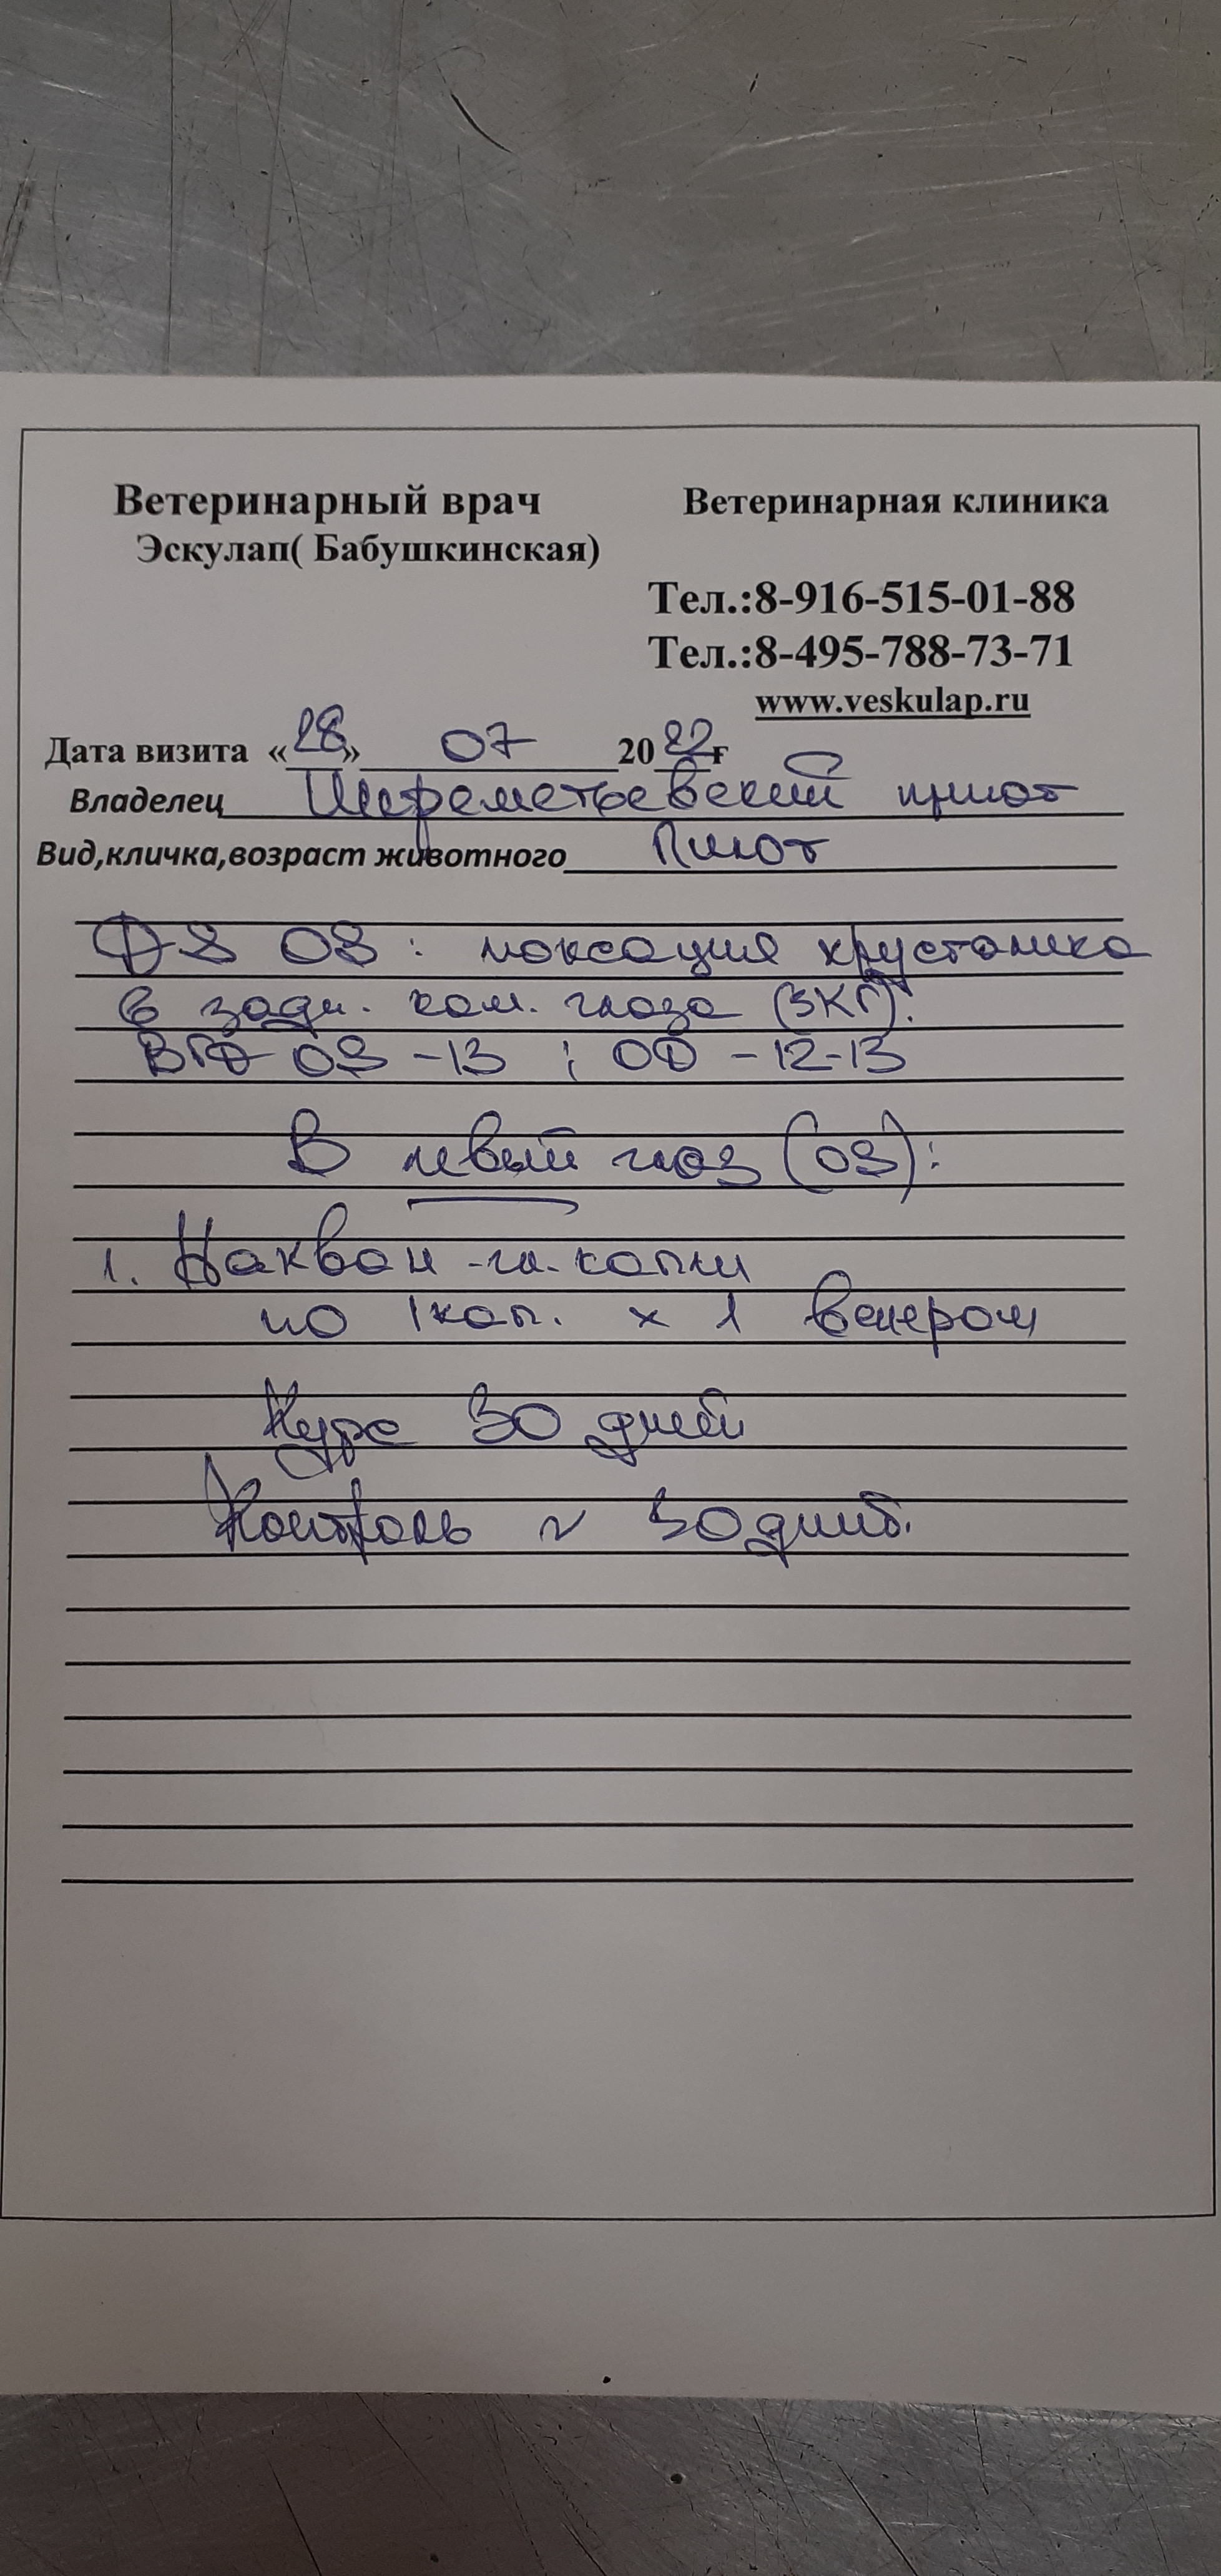 Ветеринарный врач Ветеринарная клиника
Эскулап( Бабушкинская)
Тел.:8-916-515-01-88
Тел.:8-495-788-73-71
www.veskulap.ru
Дата визита «28» 07 2022г
Владелец Шереметьевский приют
Вид,кличка,возраст животного Пилот
DS OS : люксация хрусталика
в задн. кам. глаза (ЗКГ).
ВГД OS -13 ; OD -12-13
В левый глаз (OS):
1. Накван - гл. капли
по 1 кап. x 1 вечером
Курс 30 дней
Контроль ~ 30 дней.